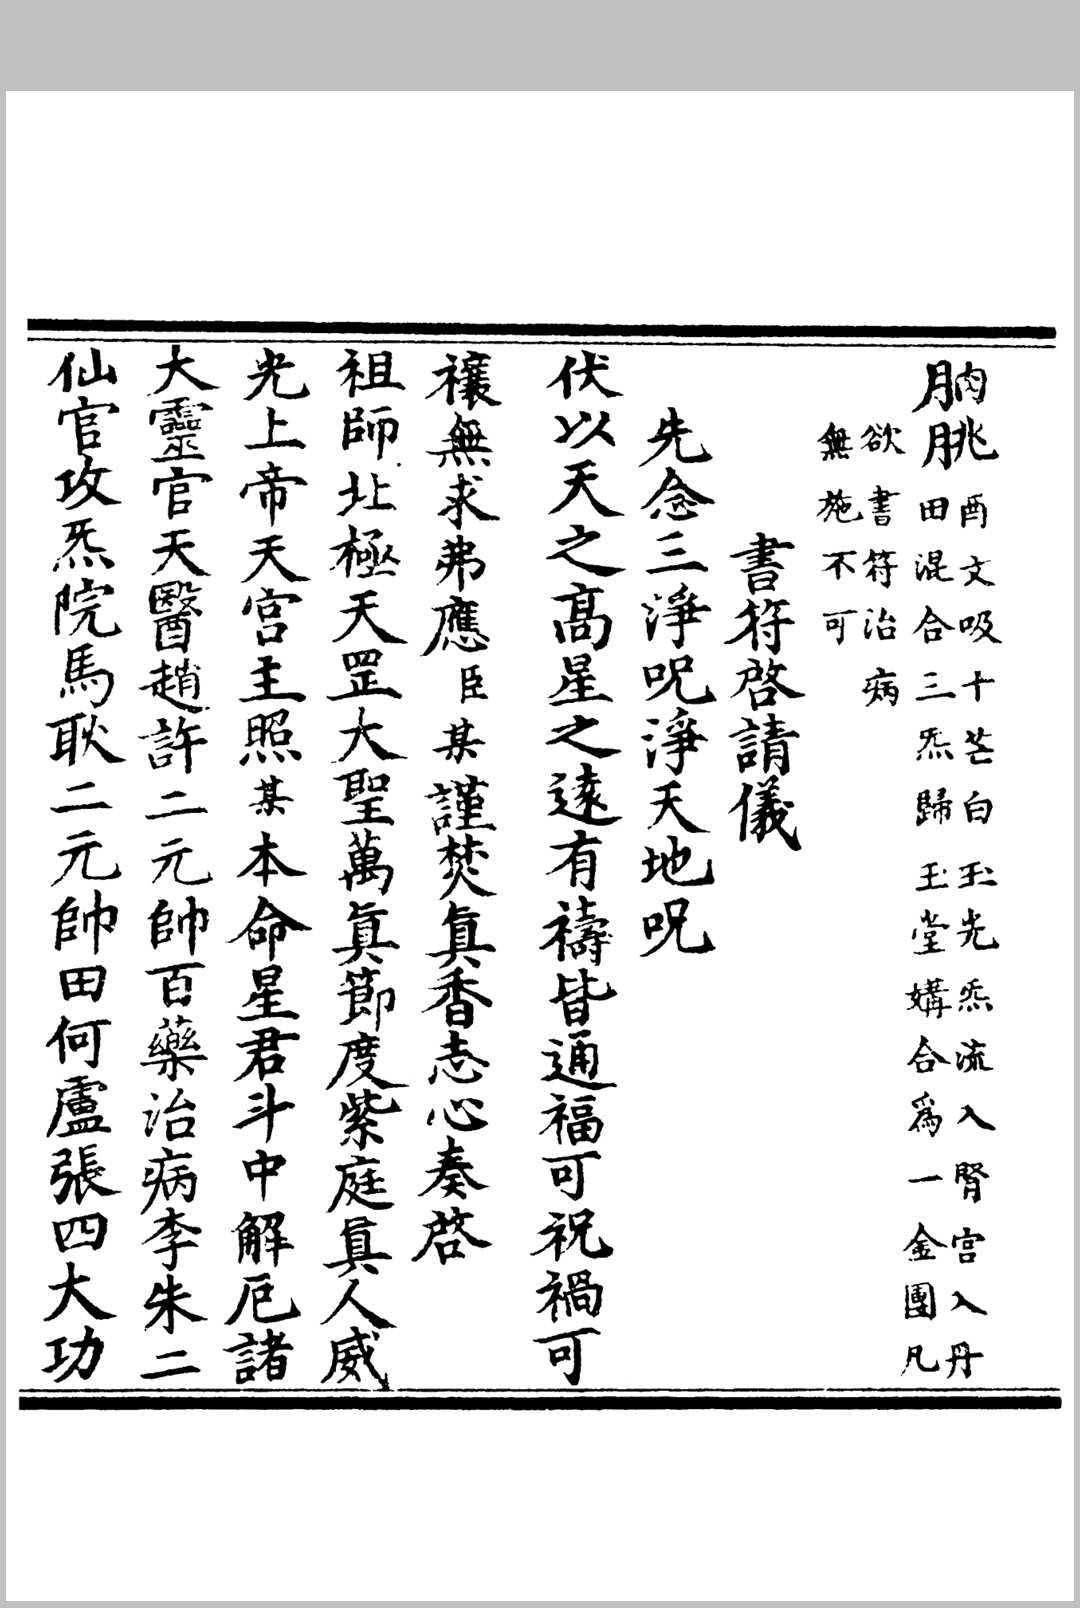 朒朓
酉文吸十芒白玉光炁流入腎宫入丹
田混合三炁歸玉堂媾合爲一金團凡
欲書符治病
無施不可
書符啓請儀
先念三淨呪淨天地呪
伏以天之髙星之遠有禱皆通福可祝禍可
禳無求弗應臣某謹焚眞香志心奏啓
祖師北極天罡大聖萬眞節度紫庭眞人威
光上帝天宮主照某本命星君斗中解厄諸
大靈官天醫趙許二元帥百藥治病李朱二
仙官攻炁院馬耿二元帥田何盧張四大功